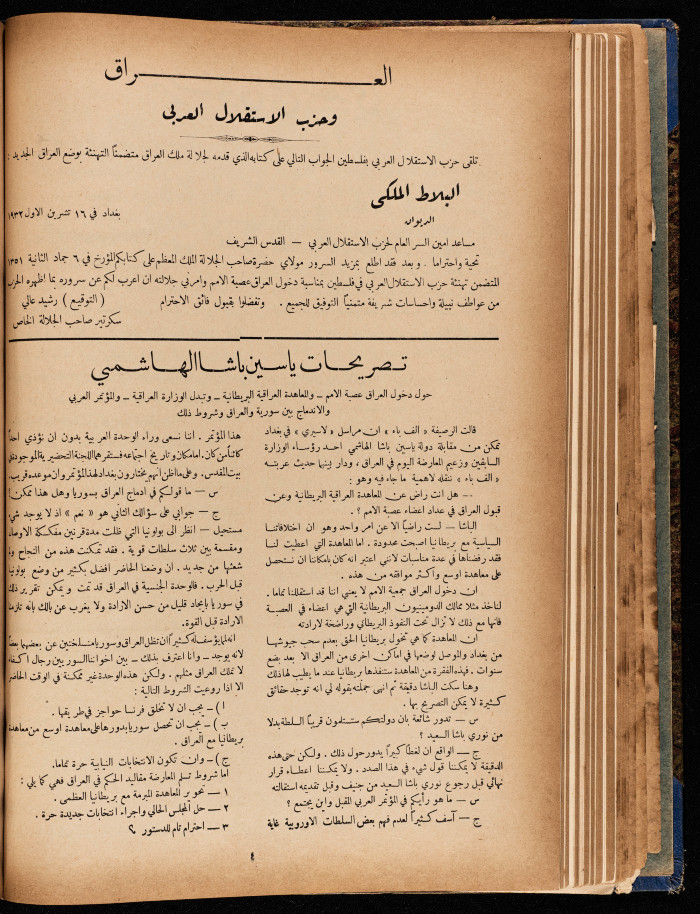 العـــراق
وحزب الاستقلال العربي
تلقى حزب الاستقلال العربي بفلسطين الجواب التالي على كتابه الذي قدمه لجلالة ملك العراق متضمناً التهنئة بوضع العراق الجديد :
البلاط الملكي
الديوان
بغداد في ١٦ تشرين الاول ١٩٣٢
مساعد امين السر العام لحزب الاستقلال العربي — القدس الشريف
تحية واحتراما . وبعد فقد اطلع بمزيد السرور مولاي حضرة صاحب الجلالة الملك المعظم على كتابكم المؤرخ في ٦ جماد الثانية ١٣٥١
المتضمن تهنئة حزب الاستقلال العربي في فلسطين بمناسبة دخول العراق عصبة الامم وامرني جلالته ان اعرب لكم عن سروره بما اظهره الحزب
من عواطف نبيلة واحساسات شريفة متمنياً التوفيق للجميع . وتفضلوا بقبول فائق الاحترام
( التوقيع ) رشيد عالي
سكرتير صاحب الجلالة الخاص
تصريحات ياسين باشا الهاشمي
حول دخول العراق عصبة الامم — والمعاهدة العراقية البريطانية — وتبدل الوزارة العراقية — والمؤتمر العربي
والاندماج بين سورية والعراق وشروط ذلك
قالت الرصيفة « الف باء » ان مراسل « لاسيري » في بغداد
تمكن من مقابلة دولة ياسين باشا الهاشمي احد رؤساء الوزارة
السابقين وزعيم المعارضة اليوم في العراق ، ودار بينهما حديث عربته
« الف باء » ننقله لاهمية ما جاء فيه وهو :
— هل انت راض عن المعاهدة العراقية البريطانية وعن
قبول العراق في عداد اعضاء عصبة الامم ؟ .
الباشا — لست راضياً الا عن امر واحد وهو ان اختلافاتنا
السياسية مع بريطانيا اصبحت محدودة . اما المعاهدة التي اعطيت لنا
فقد رفضناها في عدة مناسبات لانني اعتبر انه كان بامكاننا ان نستحصل
على معاهدة اوسع وأكثر موافقه من هذه .
ان دخول العراق جمعية الامم لا يعني اننا قد استقللنا تماما .
لناخذ مثلا ممالك الدومينيون البريطانية التي هي اعضاء في العصبة
فانها مع ذلك لا تزال تحت النفوذ البريطاني وراضخة لارادته
ان المعاهدة كما هي تخول بريطانيا الحق بعدم سحب جيوشها
من بغداد والموصل لوضعها في اماكن اخرى من العراق الا بعد بضع
سنوات . فهذه الفقرة من المعاهدة ستنفذها بريطانيا عند ما يطيب لها ذلك
وهنا سكت الباشا دقيقة ثم انهى جملته بقوله لي انه توجد حقائق
كثيرة لا يمكن التصريح بها .
س — تدور شائعة بان دولتكم ستستلمون قريباً السلطة بدلا
من نوري باشا السعيد ؟
ج — الواقع ان لغطاً كبيراً يدور حول ذلك . ولكن حتى هذه
الدقيقة لا يمكننا قول شيء في هذا الصدد . ولا يمكننا اعطاء قرار
نهائي قبل رجوع نوري باشا السعيد من جنيف وقبل تقديمه استقالته
س — ما هو رأيكم في المؤتمر العربي المقبل واين يجتمع ؟
ج — آسف كثيراً لعدم فهم بعض السلطات الاوروبية غاية
هذا المؤتمر . اننا نسعى وراء الوحدة العربية بدون ان نؤذي احداً
كائناً من كان . اما مكان وتاريخ اجتماعه فستقررهما اللجنة التحضيرية الموجودة في
بيت المقدس . وعلى ما اظن انهم يختارون بغداد لهذا المؤتمر وان موعده قريب .
س — ما قولكم في ادماج العراق بسوريا وهل هذا ممكن ؟
ج — جوابي على سؤالك الثاني هو « نعم » اذ لا يوجد شيء
مستحيل — انظر الى بولونيا التي ظلت مدة قرنين مفككة الاوصال
ومقسمة بين ثلاث سلطات قوية . فقد تمكنت هذه من النجاح
شعثها من جديد . ان وضعنا الحاضر افضل بكثير من وضع بولونيا
قبل الحرب . فالوحدة الجنسية في العراق قد تمت ويمكن تقرير ذلك
في سوريا بايجاد قليل من حسن الارادة ولا يغرب عن بالك بانه تلزمنا
الارادة قبل القوة .
انه لما يؤسف له كثيراً ان تظل العراق وسوريا منسلختين عن بعضهما بعضاً
لانه يوجد — وانا اعترف بذلك — بين اخواننا السوريين رجال اكفاء
لا تملك العراق مثلهم . ولكن هذه الوحدة غير ممكنة في الوقت الحاضر
الا اذا روعيت الشروط التالية :
ا ) — يجب ان لا تخلق فرنسا حواجز في طريقها .
ب ) — يجب ان تحصل سوريا بدورها على معاهدة اوسع من معاهدة
بريطانيا مع العراق .
ج ) — وان تكون الانتخابات النيابية حرة تماما .
اما شروط تسلم المعارضة مقاليد الحكم في العراق فهي كما يلي :
١ — تحوير المعاهدة المبرمة مع بريطانيا العظمى .
٢ — حل المجلس الحالي واجراء انتخابات جديدة حرة .
٣ — احترام تام للدستور
٤